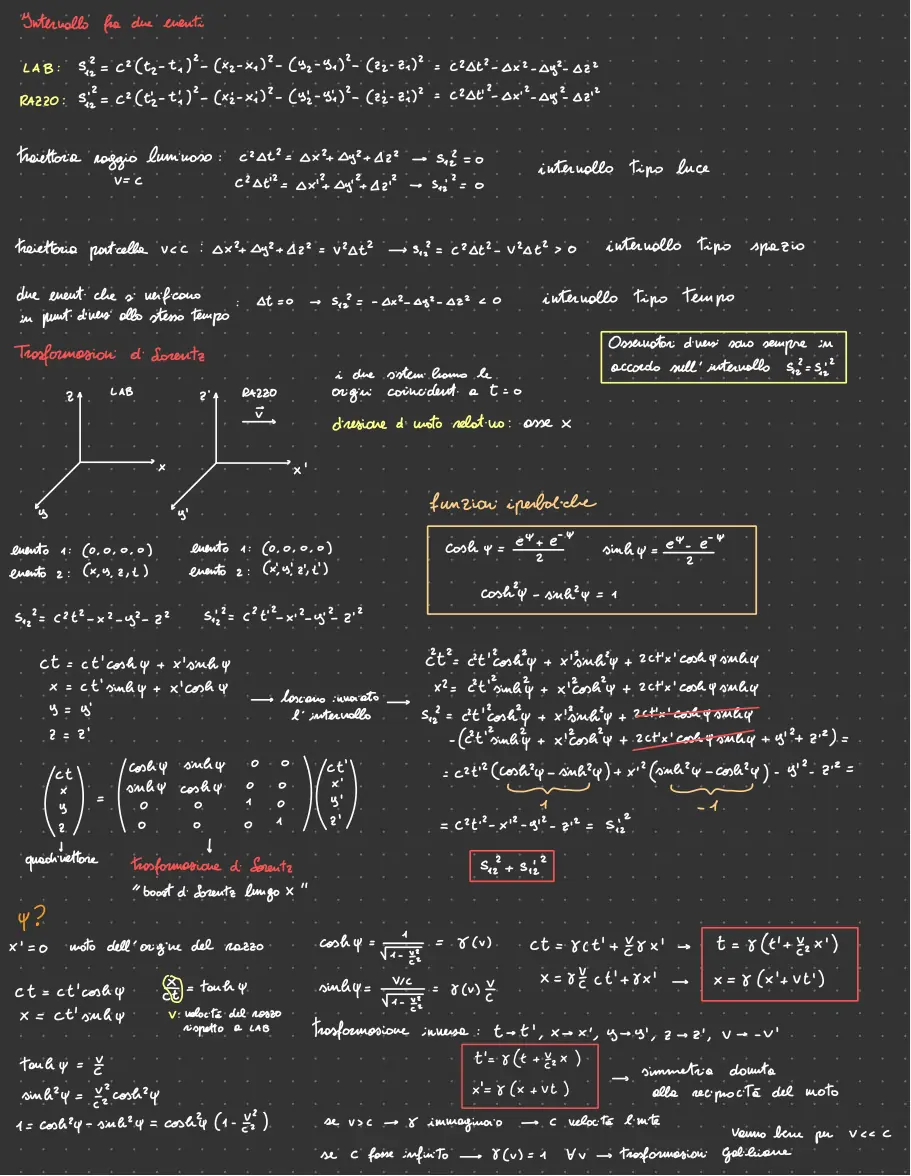 Intervallo fra due eventi
LAB: S₁₂² = c²(t₂-t₁)² - (x₂-x₁)² - (y₂-y₁)² - (z₂-z₁)² = c²Δt² - Δx² - Δy² - Δz²
RAZZO: S₁₂'² = c²(t₂'-t₁')² - (x₂'-x₁')² - (y₂'-y₁')² - (z₂'-z₁')² = c²Δt'² - Δx'² - Δy'² - Δz'²
traiettoria raggio luminoso: c²Δt² = Δx² + Δy² + Δz² → S₁₂² = 0
intervallo tipo luce
v=c
c²Δt'² = Δx'² + Δy'² + Δz'² → S₁₂'² = 0
traiettoria particella v<c : Δx² + Δy² + Δz² = v²Δt² → S₁₂² = c²Δt² - v²Δt² > 0 intervallo tipo spazio
due eventi che si verificano
in punti diversi allo stesso tempo
: Δt=0 → S₁₂² = -Δx² - Δy² - Δz² < 0 intervallo tipo tempo
Osservatori diversi sono sempre in
accordo sull'intervallo S₁₂² = S₁₂'²
Trasformazioni di Lorentz
z LAB x y
z' RAZZO v⃗ x' y'
i due sistemi hanno le
origini coincidenti a t=0
direzione di moto relativo: asse x
evento 1: (0,0,0,0) evento 1: (0,0,0,0)
evento 2: (x,y,z,t) evento 2: (x',y',z',t')
S₁₂² = c²t² - x² - y² - z² S₁₂'² = c²t'² - x'² - y'² - z'²
funzioni iperboliche
cosh ψ = (e^ψ + e^-ψ)/2 sinh ψ = (e^ψ - e^-ψ)/2
cosh²ψ - sinh²ψ = 1
ct = ct'cosh ψ + x'sinh ψ
x = ct'sinh ψ + x'cosh ψ
y = y'
z = z'
→ lasciano invariato
l'intervallo →
c²t² = c²t'²cosh²ψ + x'²sinh²ψ + 2ct'x'cosh ψ sinh ψ
x² = c²t'²sinh²ψ + x'²cosh²ψ + 2ct'x'cosh ψ sinh ψ
S₁₂² = c²t'²cosh²ψ + x'²sinh²ψ + 2ct'x'cosh ψ sinh ψ
-(c²t'²sinh²ψ + x'²cosh²ψ + 2ct'x'cosh ψ sinh ψ + y'² + z'²) =
= c²t'²(cosh²ψ - sinh²ψ) + x'²(sinh²ψ - cosh²ψ) - y'² - z'² =
1 -1
= c²t'² - x'² - y'² - z'² = S₁₂'²
S₁₂² + S₁₂'²
ct = cosh ψ sinh ψ 0 0 ct'
x sinh ψ cosh ψ 0 0 x'
y 0 0 1 0 y'
z 0 0 0 1 z'
↓ ↓
quadrivettore
trasformazione di Lorentz
"boost di Lorentz lungo x"
ψ?
x'=0 moto dell'origine del razzo
ct = ct'cosh ψ
x = ct'sinh ψ
x/ct = tanh ψ
v: velocità del razzo
rispetto a LAB
tanh ψ = v/c
sinh²ψ = v²/c² cosh²ψ
1 = cosh²ψ - sinh²ψ = cosh²ψ (1 - v²/c²)
cosh ψ = 1/√(1 - v²/c²) = γ(v)
sinh ψ = (v/c)/√(1 - v²/c²) = γ(v) v/c
ct = γct' + v/c γx' → t = γ(t' + v/c² x')
x = γ v/c ct' + γx' → x = γ(x' + vt')
trasformazione inversa: t→t', x→x', y→y', z→z', v→-v'
t' = γ(t + v/c² x)
x' = γ(x + vt)
→ simmetria dovuta
alla reciprocità del moto
se v>c → γ immaginario → c velocità limite
se c fosse infinito → γ(v) = 1 ∀v → trasformazioni Galileiane
Vanno bene per v<<c